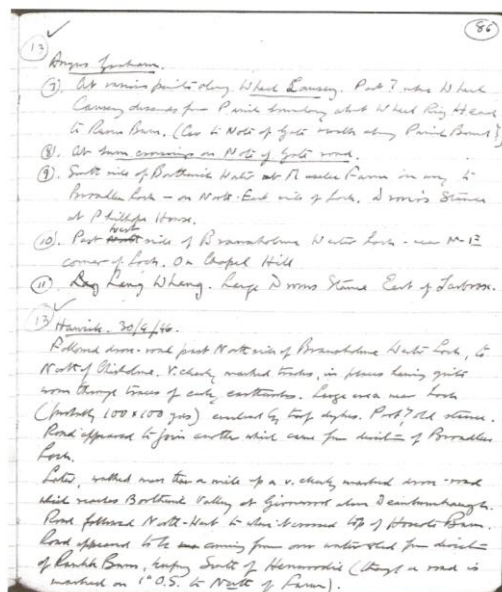 86
12
Angus Graham.
(7). At various points along Wheel Causey. Part ? where Wheel
Causey diverges from Parish boundary about Wheel Rig Head
to Burn. (Cross to Note of Gate along Parish Bound?)
(8). At burn crossings on Note of Gate road.
(9). South side of Borthwick Water at Farm on way to
Broadlee Loch – on North-East side of Loch. Drovers Stance
at Phillhope House.
(10). Past west side of Branxholme Wester Loch – near N-E
corner of Loch. On Chapel Hill
(11). Lang Whang. Large Drovers Stance East of Tarbrax.
13
Hawick. 30/4/46.
Followed drove-road past North side of Branxholme Wester Loch, to
North of Chisholme. V. clearly marked tracks, in places having quite
worn through traces of early earthworks. Large area near Loch
(probably 100 x 100 yds) enclosed by turf dykes. Prob? old stance.
Road appeared to join another which came from direction of Broadlee
Loch.
Later, walked more than a mile up a v. clearly marked drove-road
which reaches Borthwick Valley at Girnwood above Deanburnhaugh.
Road followed North-West to where it crossed top of Burn.
Road appeared to be coming from over watershed from direction
of Rankle Burn, keeping South of (though a road is
marked on 1" O.S. to North of Farm).